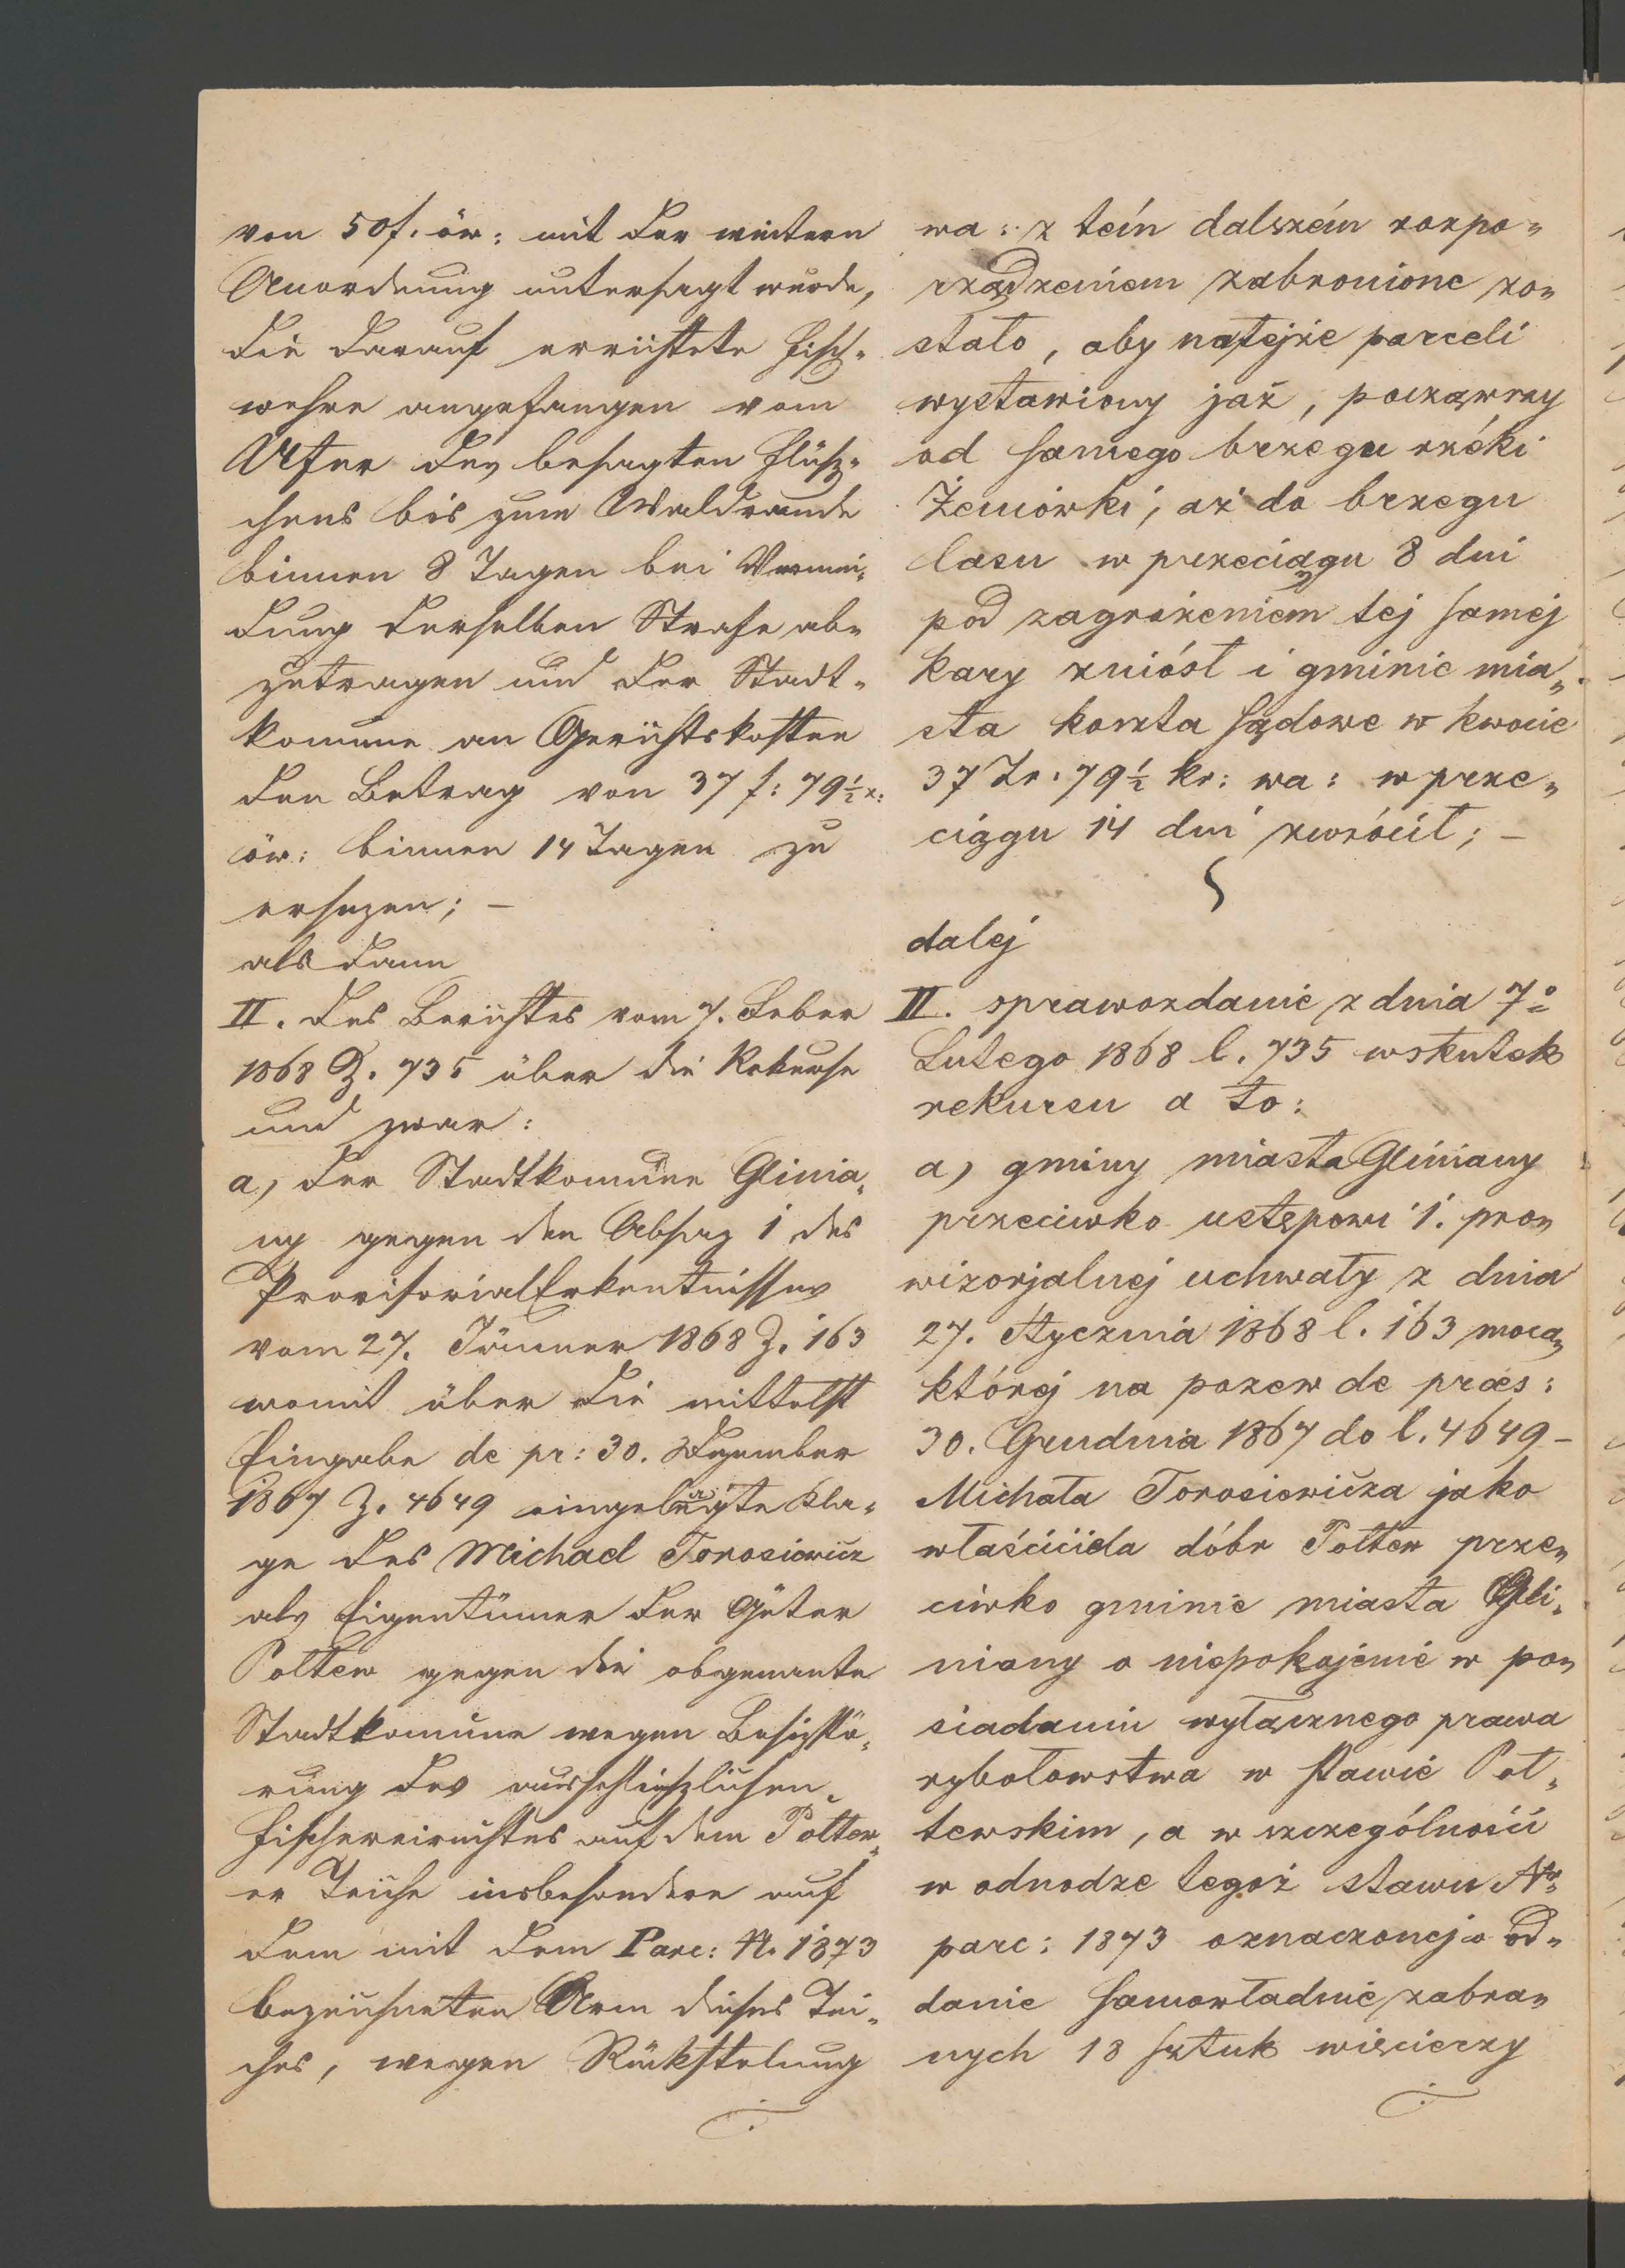 von 50 f. öw: mit der weitern
Anordnung untersagt wurde,
die darauf errichtete Fisch-
wehre angefangen vom
Ufer des besagten Flüsz-
chens bis zum Waldrande
binnen 8 Tagen bei Vermei-
dung derselben Strafe ab-
zutragen und der Stadt-
komune an Gerichtskosten
den Betrag von 37 f: 79½ x:
öw: binnen 14 Tagen zu
ersezen; –
als dann
II. des Berichtes vom 7. Feber
1868 Z. 735 über die Rekurse
und zwar:
a, der Stadtkomune Glinia-
ny gegen den Absaz 1 des
Provisorial Erkentnisses
vom 27. Jänner 1868 Z. 163
womit über die mittelst
Eingabe de pr: 30. Dezember
1867 Z. 4649 eingelangte Kla-
ge des Michael Torosiewicz
als Eigentümer der Güter
Połtew gegen die obgenante
Stadtkomune wegen Besizstö-
rung des ausschlieszlichen
Fischereirechtes auf dem Połtew-
er Teiche insbesondere auf
dem mit dem Parc: N. 1873
bezeichneten Arm dieses Tei-
ches, wegen Rükstelung
wa: z tém dalszém rozpo-
rządzeniem zabronione zo-
stało, aby na tejże parceli
wystawiony jaz, począwszy
od samego brzegu rzéki
Żeniówki, aż do brzegu
lasu w przeciągu 8 dni
pod zagrożeniem tej samej
kary zniósł i gminie mia-
sta koszta sądowe w kwocie
37 Zr. 79½ kr: wa: w prze-
ciągu 14 dni zwrócił; –
dalej
II. sprawozdanie z dnia 7º
Lutego 1868 l. 735 wskutek
rekursu a to:
a, gminy miasta Gliniany
przeciwko ustępowi 1. pro-
wizorjalnej uchwały z dnia
27. Stycznia 1868 l. 163 mocą
której na pozew de práes:
30. Grudnia 1867 do l. 4649 –
Michała Torosiewicza jako
właściciela dóbr Połtew prze-
ciwko gminie miasta Gli-
niany o niepokojenie w po-
siadaniu wyłącznego prawa
rybołowstwa w stawie Poł-
tewskim, a w szczególności
w odnodze tegoż stawu Nº
parc: 1873 oznaczonej o od-
danie samowładnie zabra-
nych 18 sztuk więcierzy